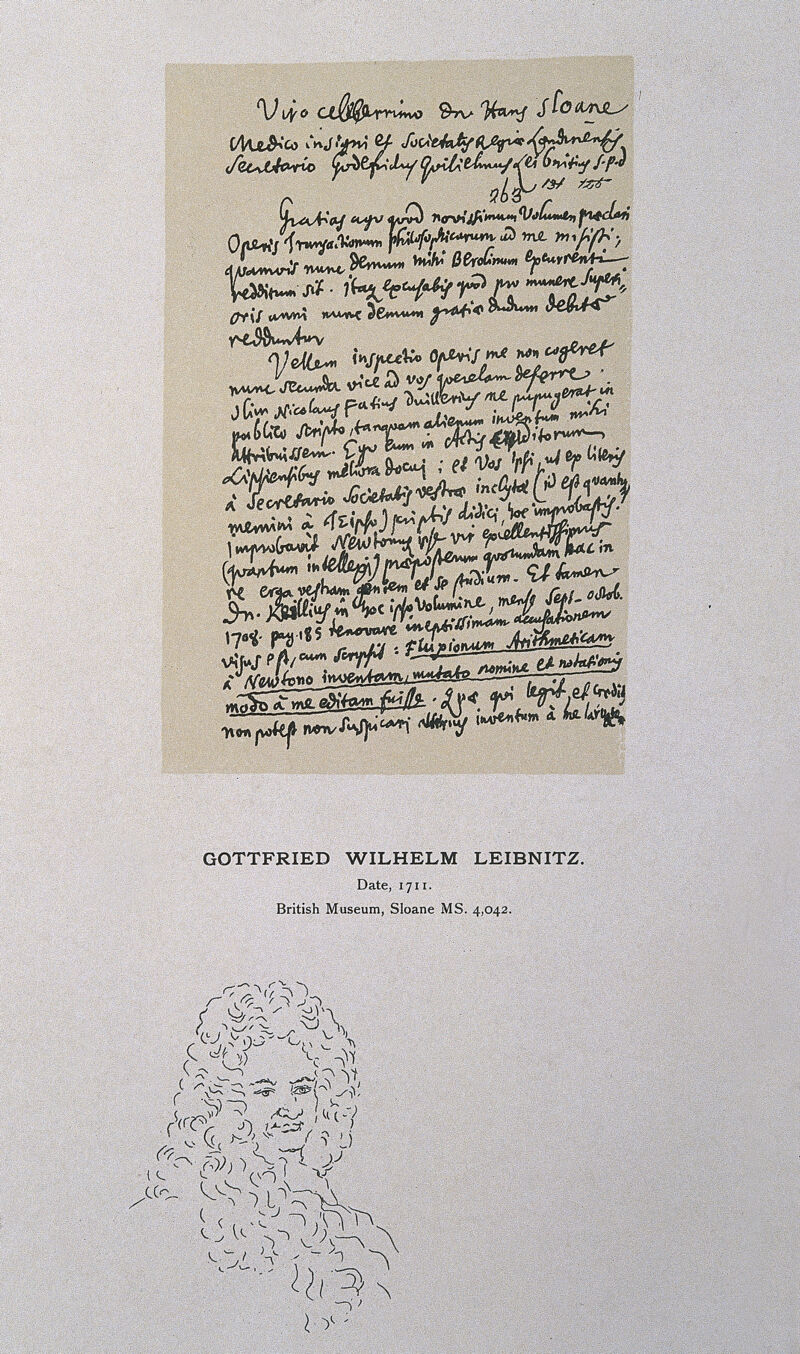 Viro celeberrimo Dn. Hans Sloane
Medico insigni et Societatis Regiae Londinensis
Secretario Godefridus Guilielmus Leibnitius s.p.d
263
Gratias ago quod novissimum Volumen praeclari
Operis Transactionum philosophicarum ad me misisti;
quamvis nunc demum mihi Berolinum excurrenti
redditum sit. Itaq excusabis quod pro munere superi=
oris anni nunc demum gratiae dudum debitae
redduntur
Vellem inspectio Operis me non cogeret
nunc secunda vice ad vos querelam deferre.
Olim Nicolaus Fatius Duillerius me pupugerat in
publico scripto, tanquam alienum inventum mihi
attribuissem. Ego eum in Actis Eruditorum
Lipsiensibus meliora docui; et Vos ipsi, ut ex literis
à Secretario Societatis vestrae inclytae (id est quantum
memini à Te ipso) scriptis didici, hoc improbastis.
Improbavit Newtonus ipse vir excellentissimus
(quantum intellexi) praeposterum quorundam hac in
re erga vestram gentem et se studium. Et tamen
Dn. Keillius in hoc ipso Volumine, mense Sept-octob.
1708. pag. 185 renovare ineptissimam accusationem
visus est, cum scripsit: Fluxionum Arithmeticam
à Newtono inventam, mutato nomine et notationis
modo à me editam fuisse. Quae qui legit, et credit
non potest non suspicari alterius inventum à me
GOTTFRIED WILHELM LEIBNITZ.
Date, 1711.
British Museum, Sloane MS. 4,042.